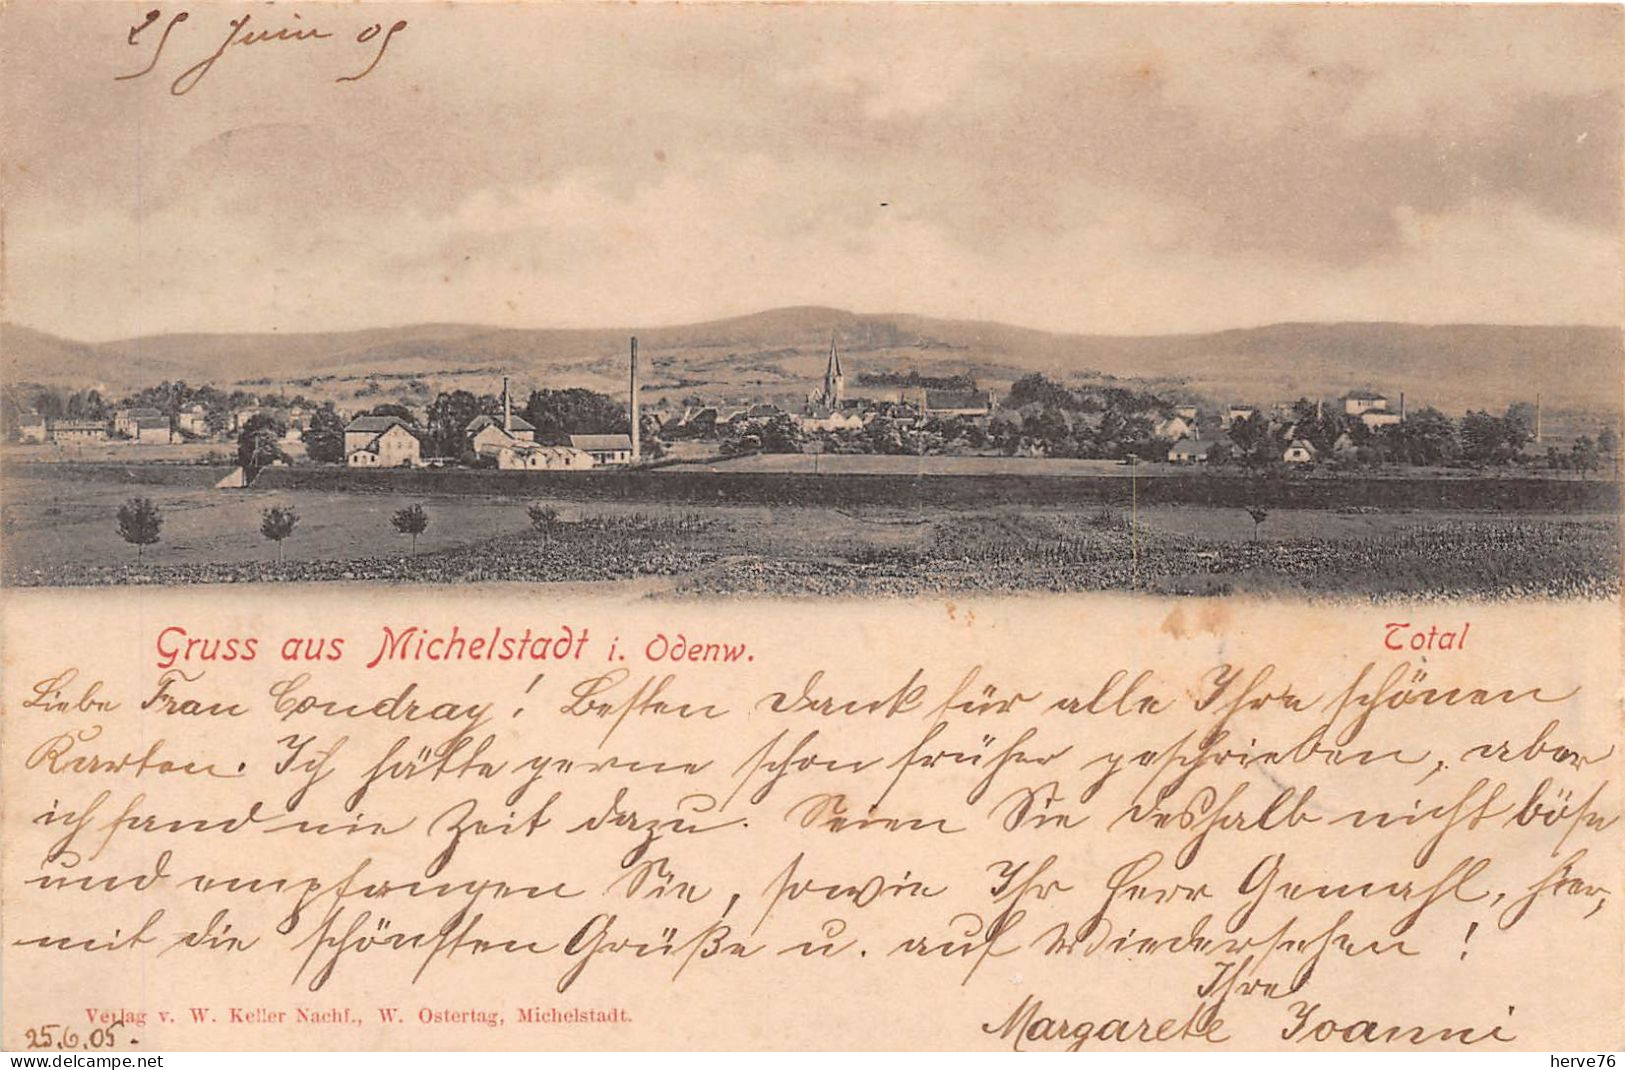 25 Juin 05
Gruss aus Michelstadt i. Odenw.
Total
Liebe Frau Coudray! Besten Dank für alle Ihre schönen
Karten. Ich hätte gerne schon früher geschrieben, aber
ich fand nie Zeit dazu. Seien Sie deshalb nicht böse
und empfangen Sie, sowie Ihr Herr Gemahl, hier,
mit die schönsten Grüße u. auf Wiedersehen!
Ihre
Margarete Joanni
Verlag v. W. Keller Nachf., W. Ostertag, Michelstadt.
25.6.05.
herve76